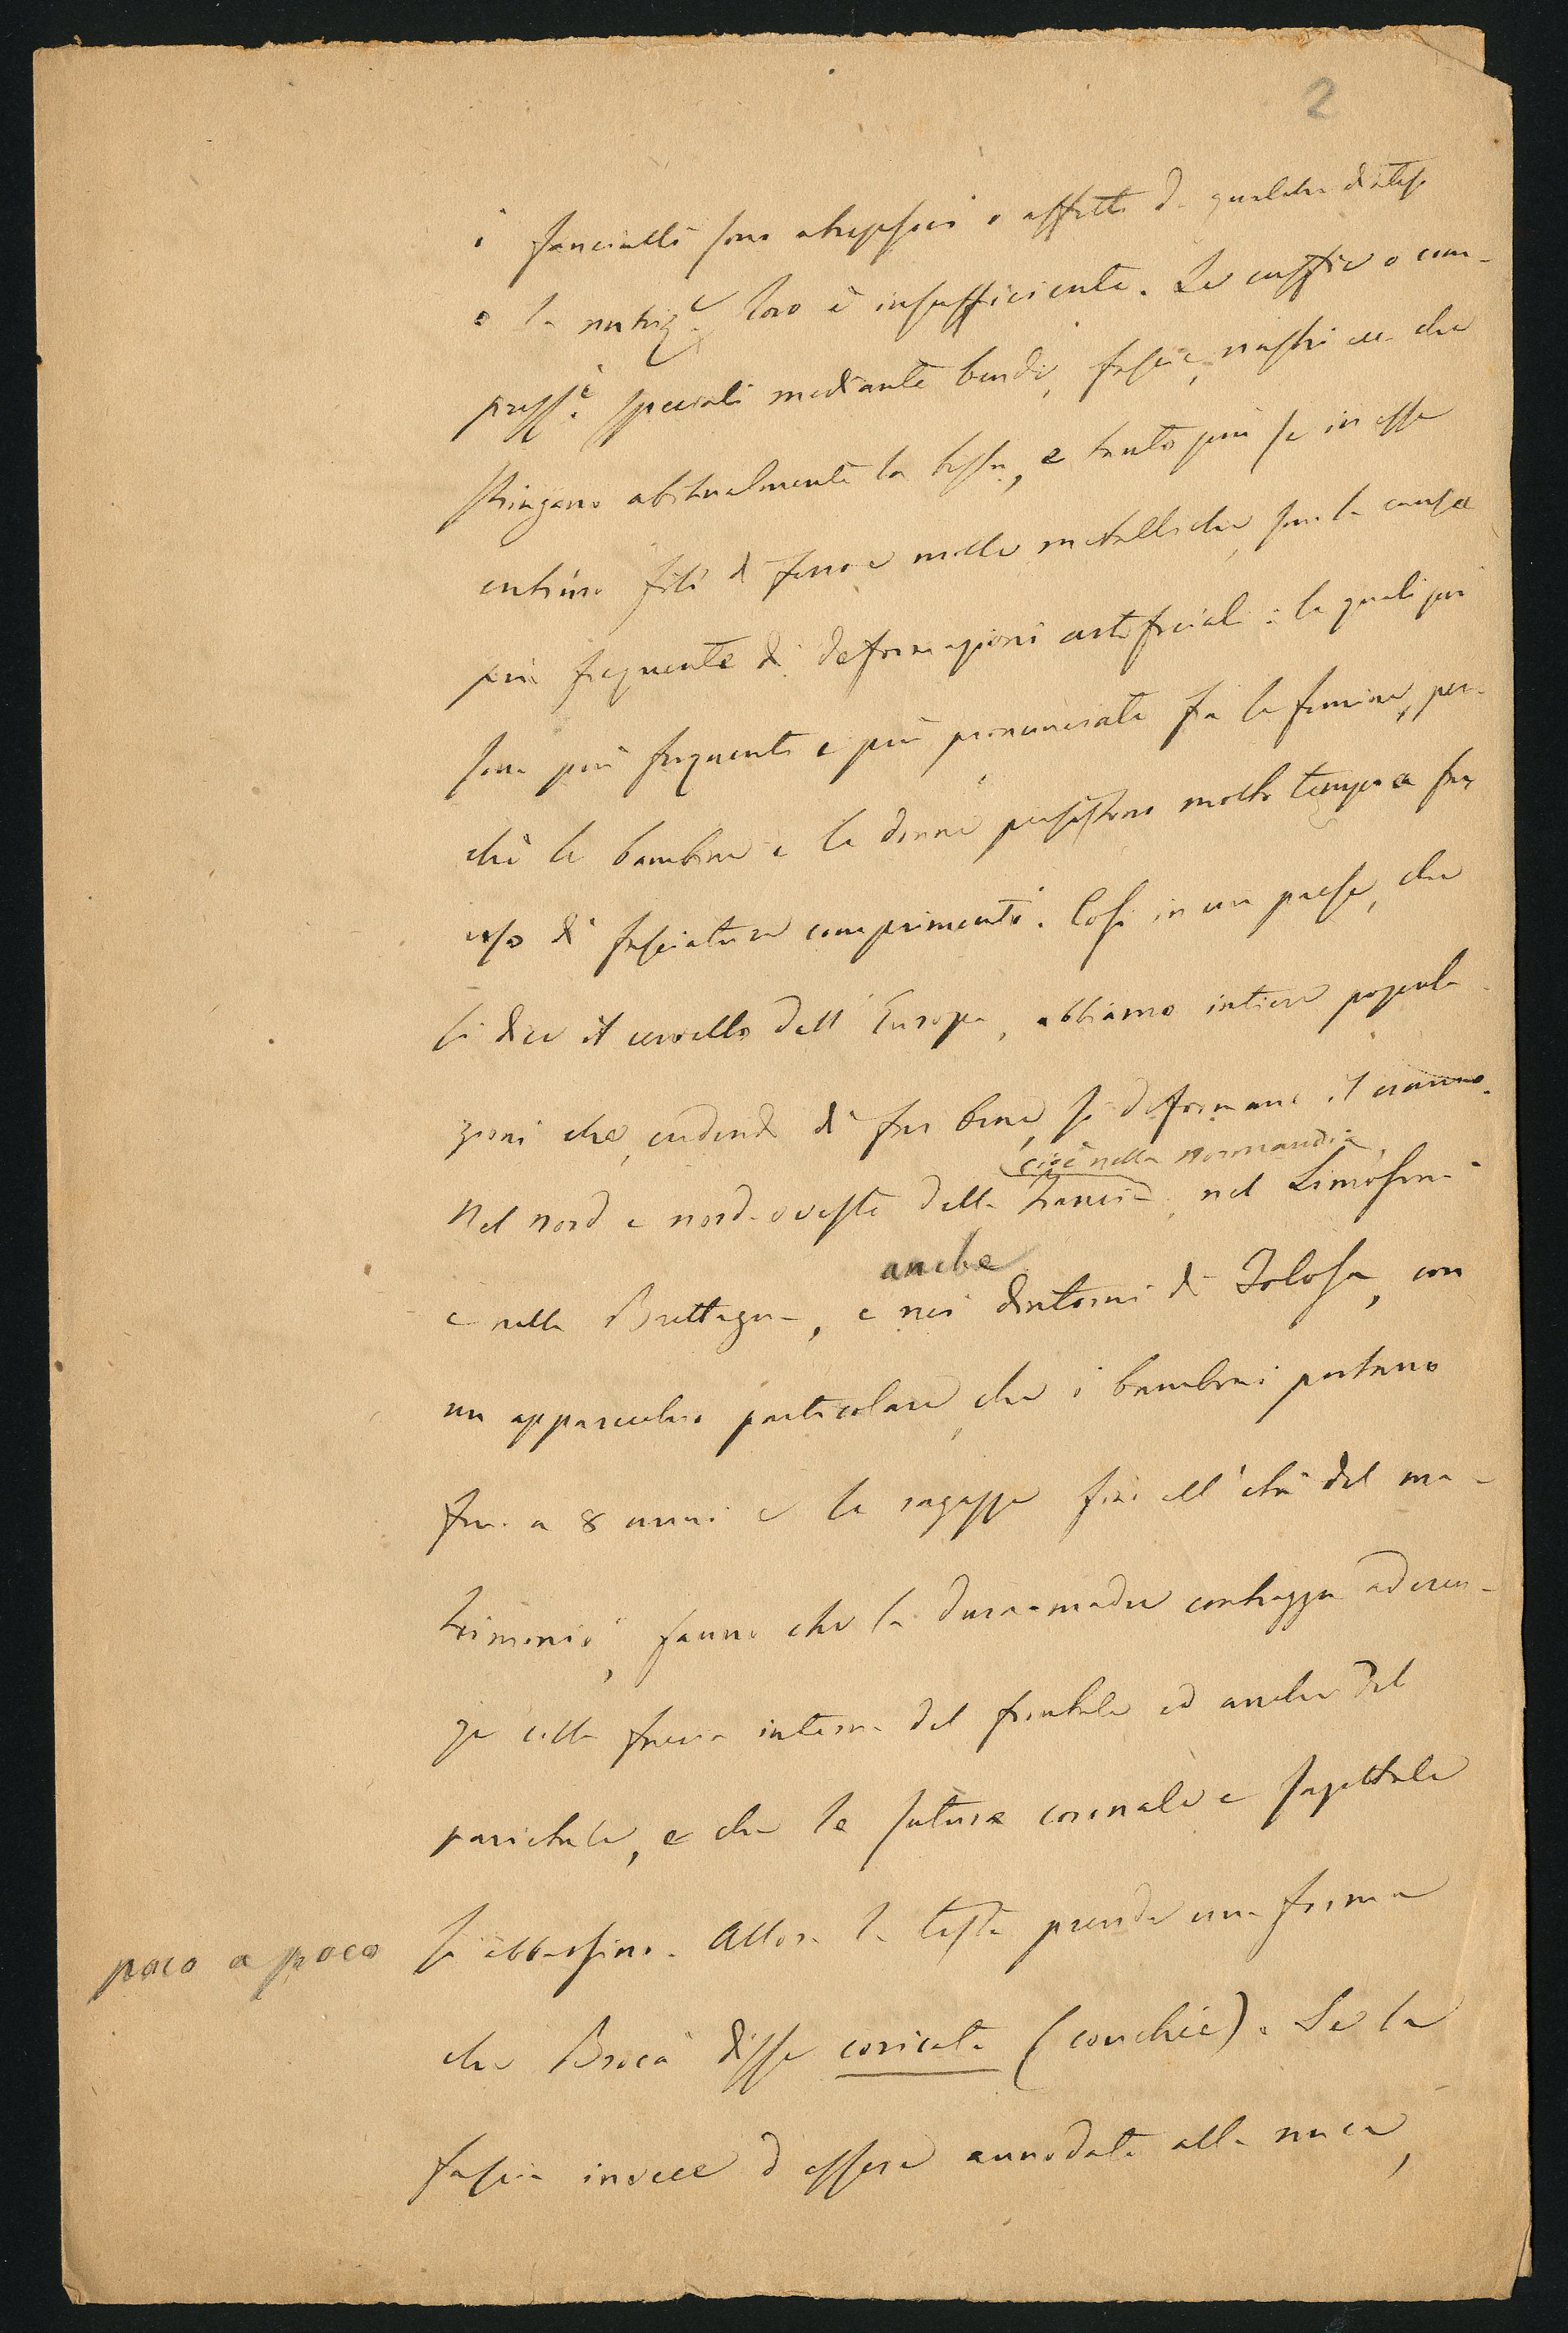 2
i fanciulli sono atrepsici o affetti da qualche diatesi
o la nutriz.e loro è insufficiente. Le cuffie o com-
press.i speciali mediante bende, fascie, nastri ecc. che
stringano abitualmente la testa, e tanto più se in esse
entrino fili di ferro e molle metalliche, son la causa
più frequente di deformazioni artificiali: le quali poi
sono più frequenti e più pronunciate fra le femine, per-
chè le bambine e le donne persistono molto tempo a far
uso di fasciature comprimenti. Così in un paese, che
si dice il cervello dell'Europa, abbiamo intiere popola-
zioni che, credendo di far bene, si deformano il cranio.
(cioè nella Normandia)
Nel nord e nord-oveste della Francia, nel Limosino
anche
e nella Brettagna, e nei dintorni di Tolosa, con
un apparecchio particolare, che i bambini portano
fin a 8 anni e le ragazze fin all'età del ma-
trimonio, fanno che la dura-madre contragga aderen-
ze colla faccia interna del frontale ed anche del
parietale, e che le suture coronale e sagittale
poco a poco si abbassino. Allora la testa prende una forma
che Broca disse coricata (couchée). Se la
fascia invece d'essere annodata alla nuca,